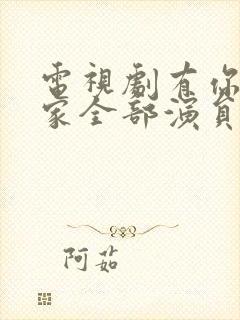 電視劇有你
家全部演員
阿茹